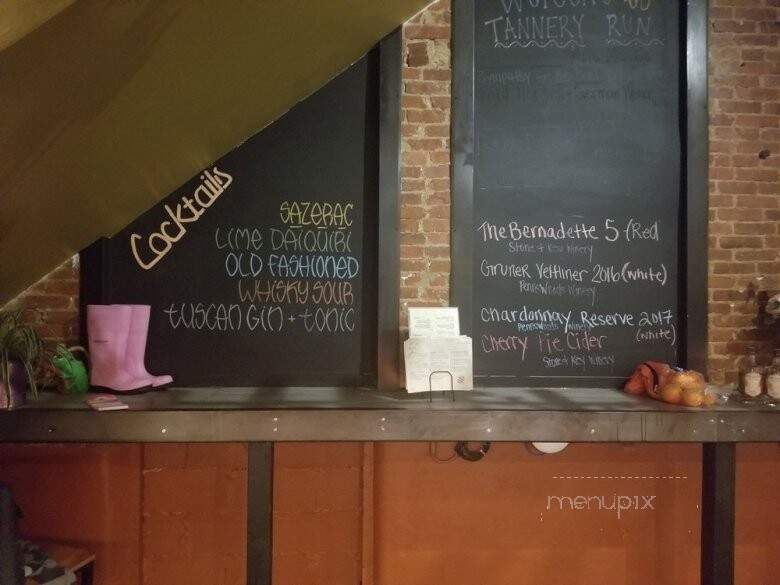 Cocktails
SAZERAC
LIME DAIQUIRI
OLD FASHIONED
WHISKY SOUR
tUSCAN GIN + tONIC
TANNERY RUN
The Bernadette 5 (Red
Stone & Key Winery
Gruner Veltliner 2016 (white)
Pennswoods Winery
Chardonnay Reserve 2017
(white)
Pennswoods Winery
Cherry Pie Cider
Stone & Key Winery
menupix